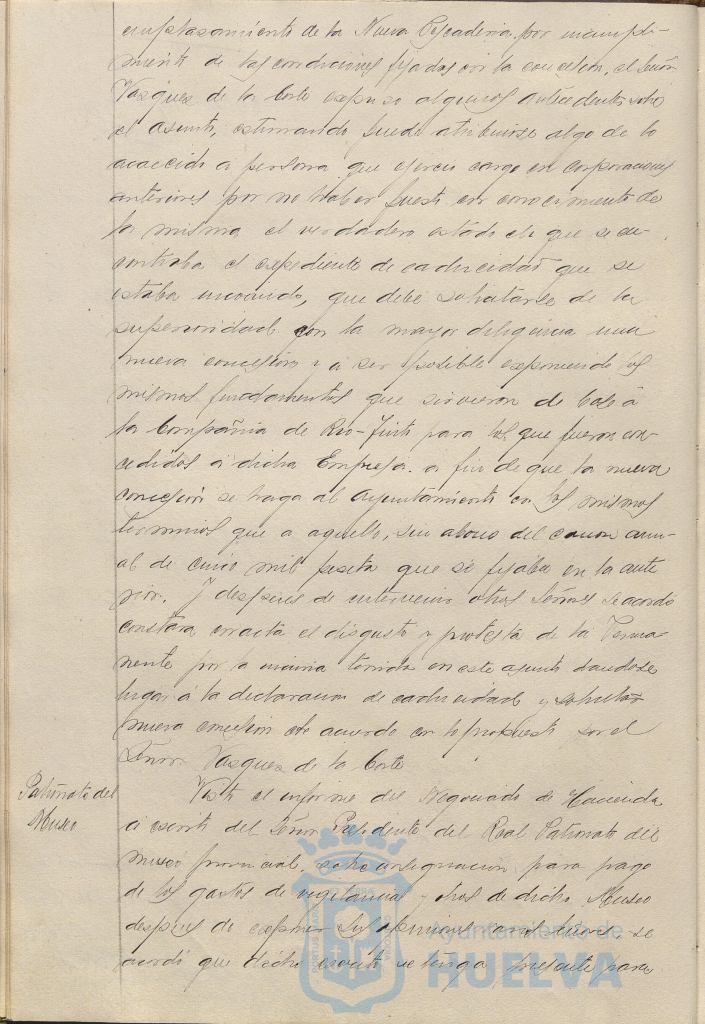 emplazamiento de la Nueva Pescaderia, por incumpli-
miento de las condiciones fijadas en la concesion, el Señor
Vazquez de la Corte expuso algunos antecedentes sobre
el asunto, estimando puede atribuirse algo de lo
acaecido a persona que ejerció cargo en corporaciones
anteriores por no haber puesto en conocimiento de
la misma el verdadero estado en que se en-
contraba el expediente de caducidad que se
estaba incoando, que debe solicitarse de la
superioridad con la mayor diligencia una
nueva concesion y a ser posible exponiendo los
mismos fundamentos que sirvieron de base á
la Compañia de Rio-Tinto para los que fueron con-
cedidos á dicha Empresa. a fin de que la nueva
concesion se haga al Ayuntamiento en los mismos
terminos que a aquella, sin abono del canon anu-
al de cinco mil pesetas que se fijaba en la ante
rior. Y despues de intervenir otros Señores se acordó
constara en acta el disgusto y protesta de la Perma-
nente por la incuria tenida en este asunto dandose
lugar á la declaracion de caducidad y solicitar
nueva concesion de acuerdo con lo propuesto por el
Señor Vazquez de la Corte
Patronato del
Museo
Visto el informe del Negociado de Hacienda
á escrito del Señor Presidente del Real Patronato del
museo provincial, sobre consignacion para pago
de los gastos de vigilancia y otros de dicho Museo
despues de exponer sus opiniones, se
acordó que dicho escrito se tenga presente para
Ayuntamiento de
HUELVA